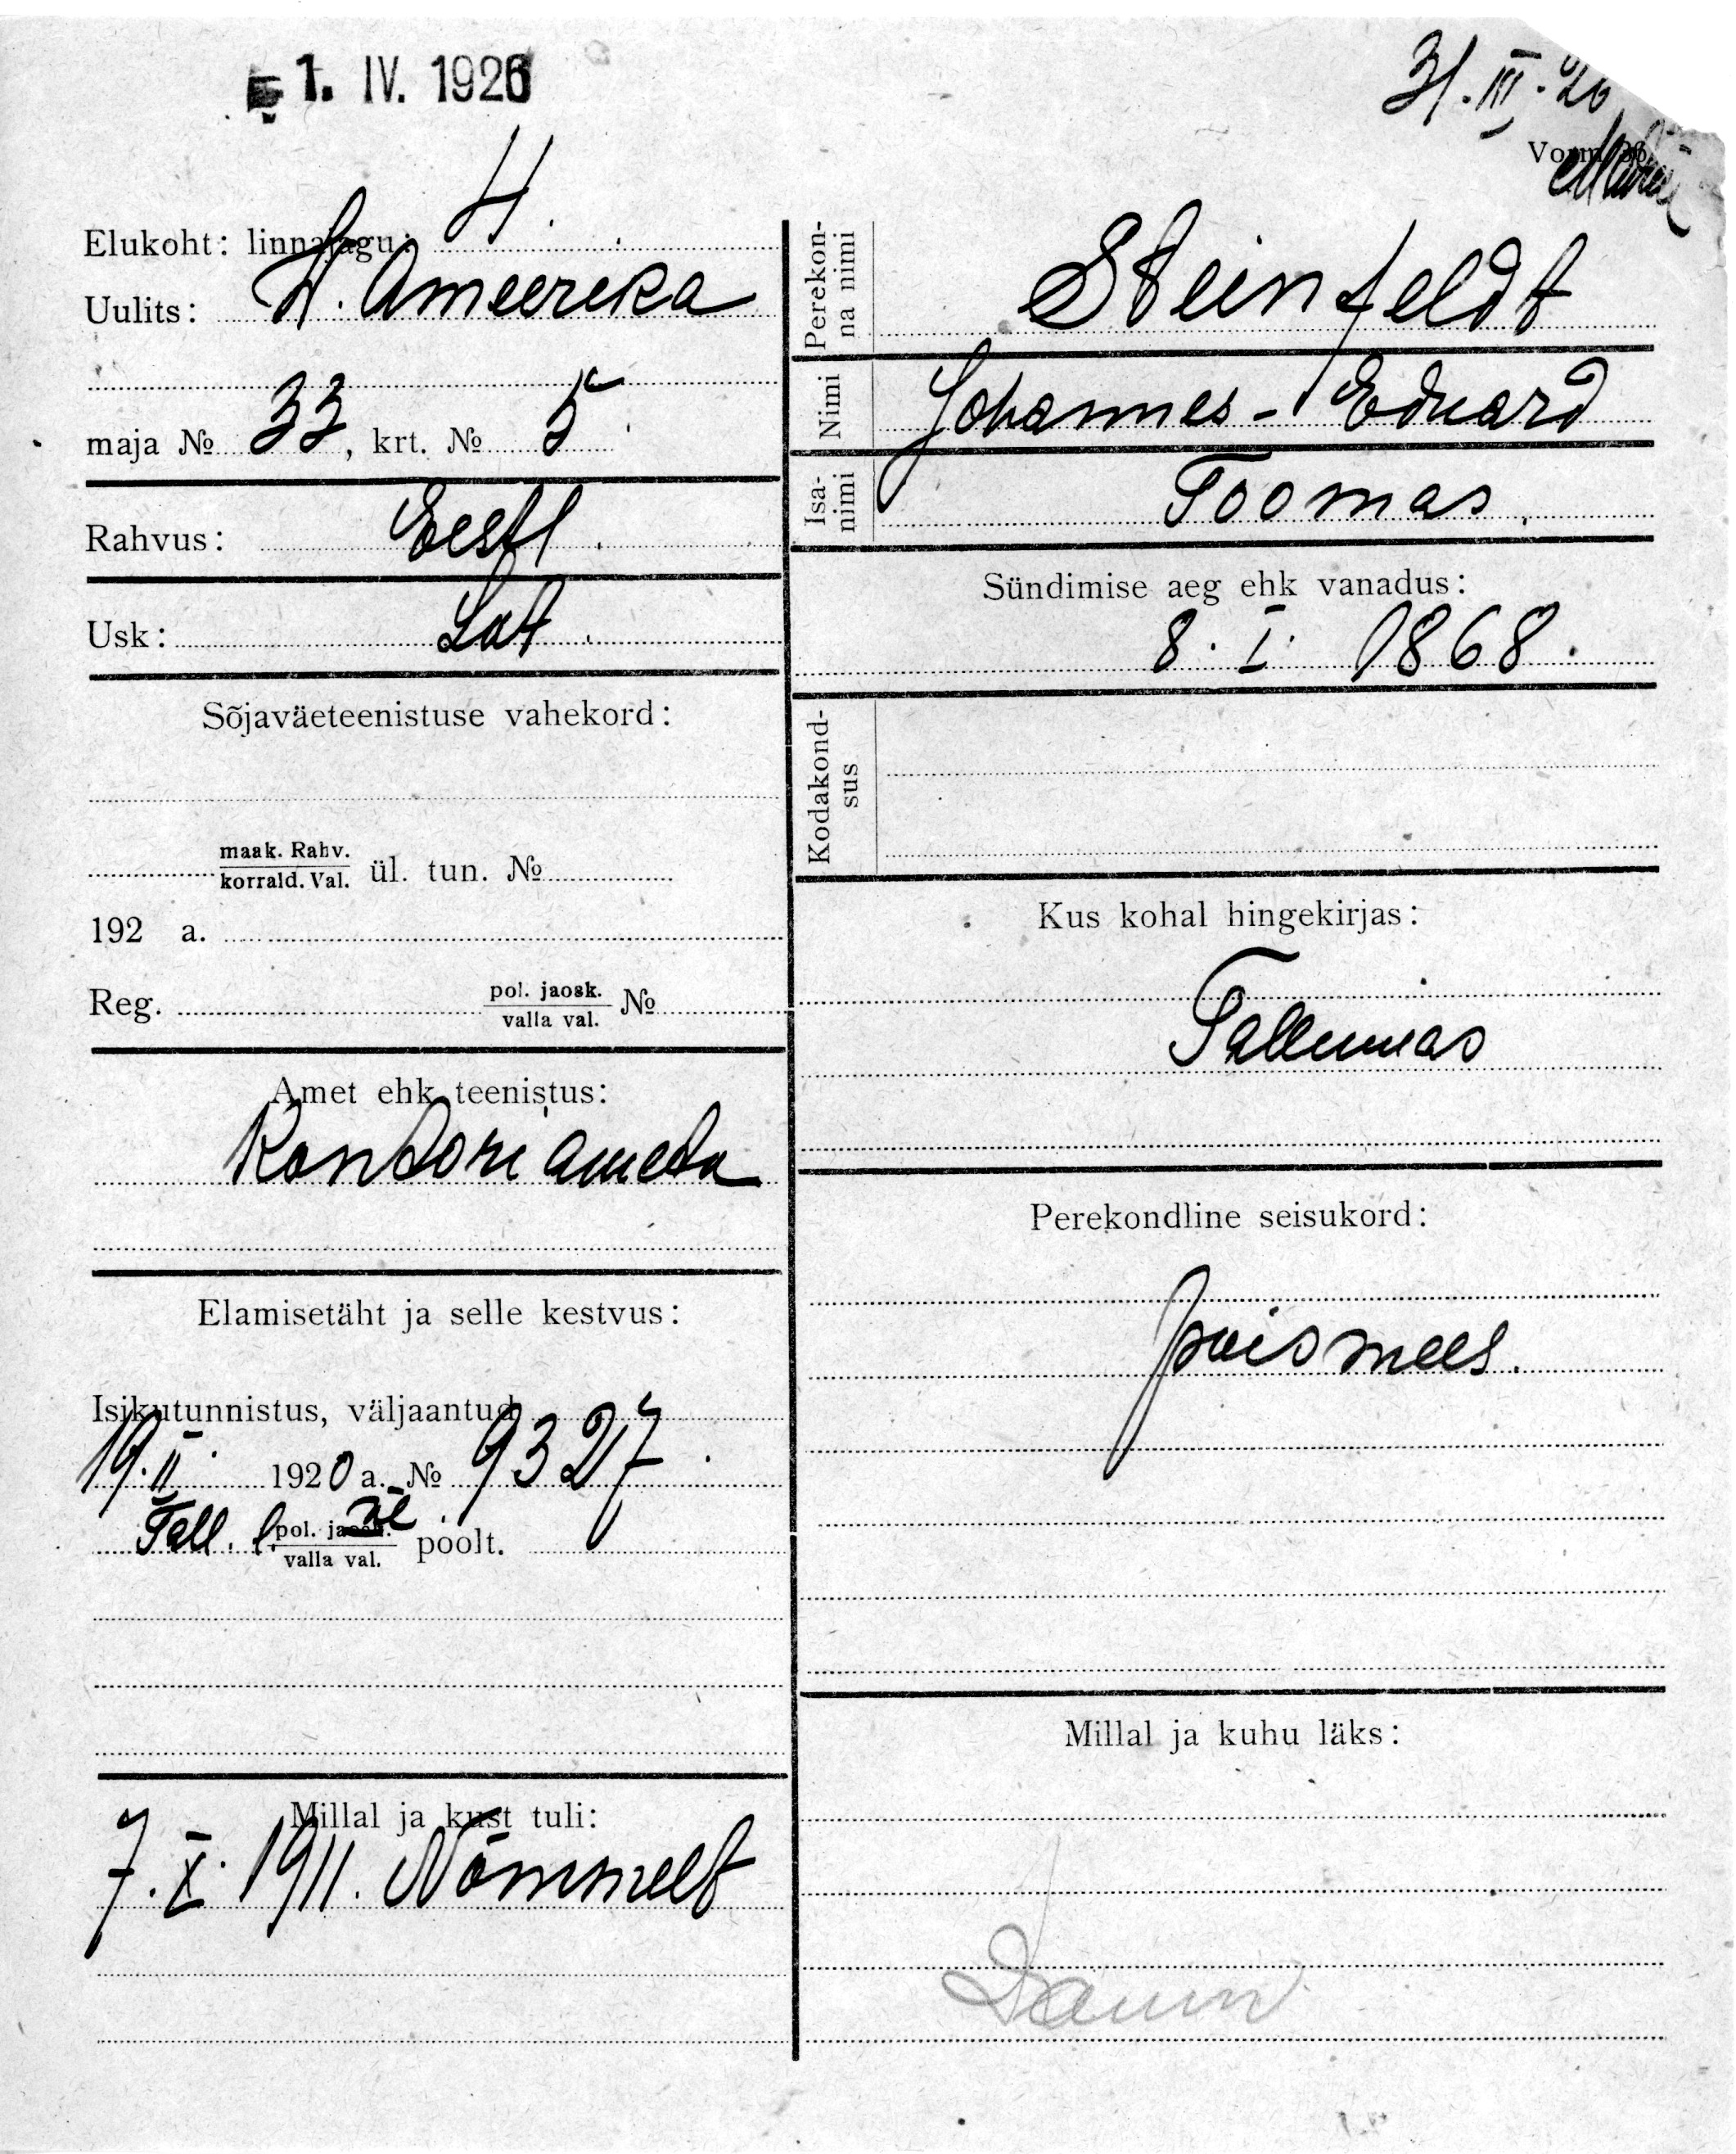 1. IV. 1926
31.III.26
Vorm
Elukoht: linnajagu: 4.
Uulits: V. Ameerika
maja № 33, krt. № 5
Rahvus: Eesti.
Usk: Lut.
Sõjaväeteenistuse vahekord:
maak. Rahv.
korrald. Val. ül. tun. №
192 a.
Reg. pol. jaosk.
valla val. №
Amet ehk teenistus:
Kontori ametn
Elamisetäht ja selle kestvus:
Isikutunnistus, väljaantud
19.II. 1920 a. № 9327.
Tall. l. pol. jaosk.
valla val. poolt.
Millal ja kust tuli:
7.X.1911. Nõmmelt
Perekon-
na nimi
Steinfeldt
Nimi
Johannes-Eduard
Isa-
nimi
Toomas.
Sündimise aeg ehk vanadus:
8. I. 1868.
Kodakond-
sus
Kus kohal hingekirjas:
Tallinnas
Perekondline seisukord:
poismees.
Millal ja kuhu läks: